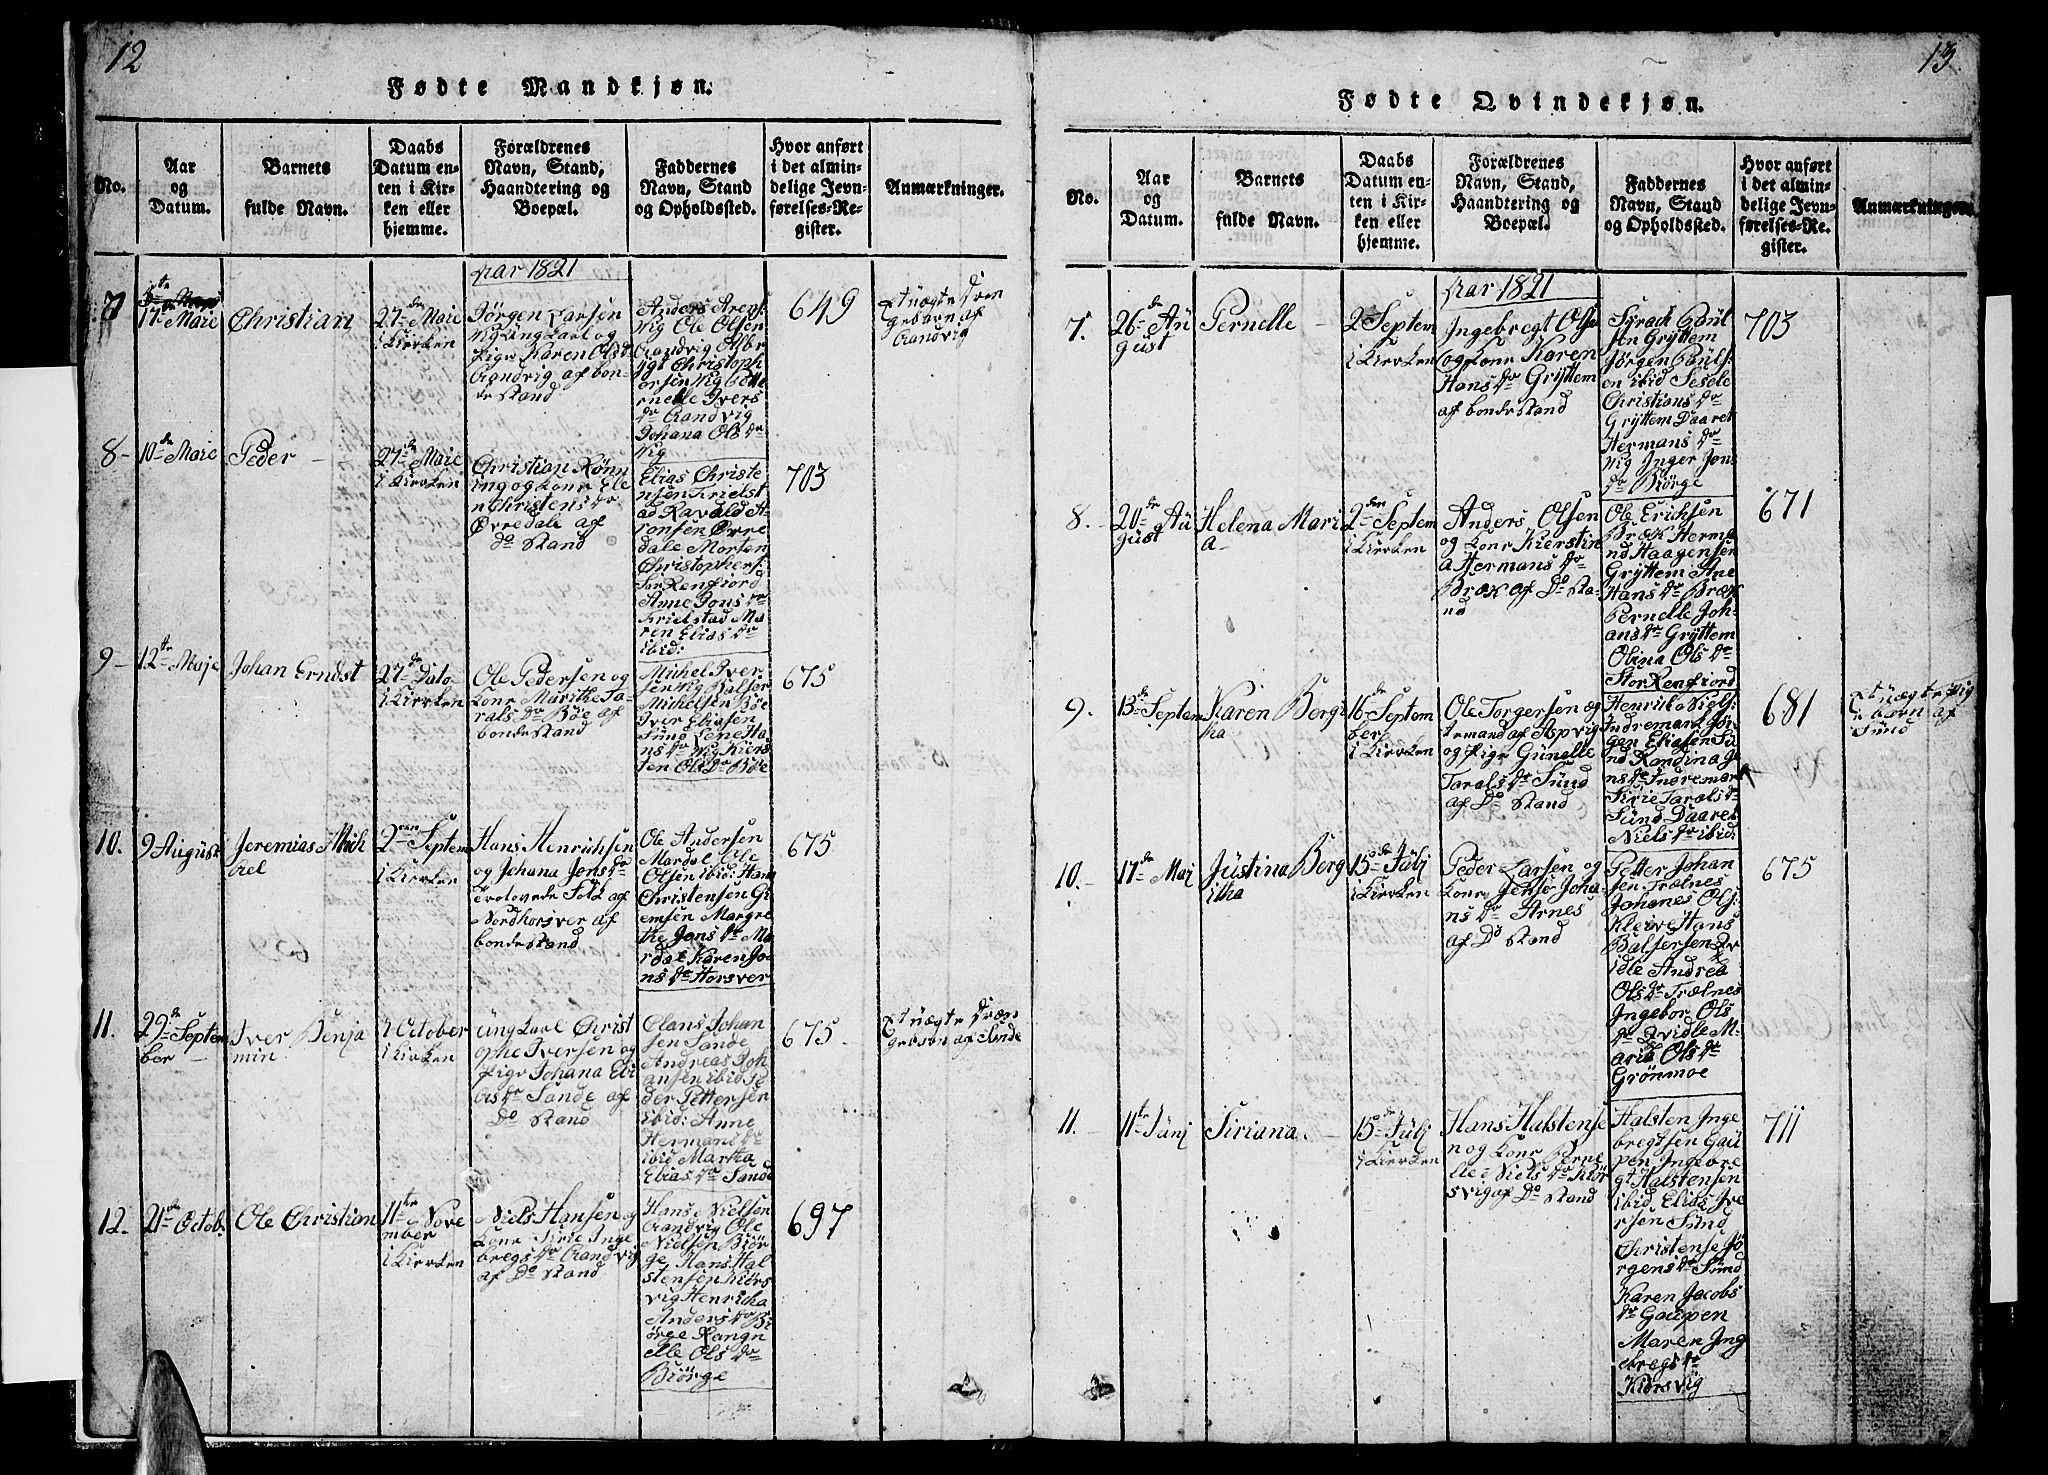 12
Fødte Mandkjøn.
No.
Aar
og
Datum.
Barnets
fulde Navn.
Daabs
Datum en-
ten i Kir-
ken eller
hjemme.
Forældrenes
Navn, Stand,
Haandtering og
Boepæl.
Faddernes
Navn, Stand
og Opholdssted.
Hvor anført
i det almin-
delige Jevn-
førelses-Re-
gister.
Anmærkninger.
Aar 1821
7
17de Maie
Christian
27de Maie
i Kirken
Jörgen Larsen
Wig Ung Karl og
Pige Karen Olsdr
Randvig af bon-
de Stand
Anders
Wig Ole Olsen
Randvig
Christoph
ersen Wig Pette
rnelle Ivers
dr Randvig
Johana Ols dr
Wig
649
Uægte
af
Randvig
8
10de Maie
Peder
27de Maie
i Kirken
Christian Rönn
ing og Kone Ele
n Christens dr
Øvredale af
do Stand
Elias Christe
nsen Frielst
ad Ravald A
ronsen Øvre
dale Morten
Christophers:
Storkenfiord
Anne Jons dr
Frielstad Ma
ren Elias dr
ibid:
703
9
12te Maje
Johan Erndst
27de Dato
i Kirken
Ole Pedersen og
Kone Marithe Ta-
rals dr Böe af
bondestand
Michel Iver
sen Wig Balser
Michelsen Böe
Iver Eliasen
Sund Lene Ha
ns dr Wig Kiers
ten Ols dr Böe
675
10.
9 August
Jeremias Mich
ael
2den Septem
i Kierken
Hans Henrichsen
og Johana Jons dr
trolovede Folk af
Nordhorsver af
bondestand
Ole Andersen
Mardal Ole
Olsen ibid: Hans
Christensen Gi
emsen Margre
the Jons dr Ma
rdal Karen Jo
ns dr Horsver
675
11.
29de Septem
ber
Iver Benja
min
7 October
i Kirken
Ung Karl Christ
ophe Iversen og
Pige Johana Eli
as dr Sande af
Do Stand
Clans Johan
sen Sande
Andreas Joh
ansen ibid Pe
der Pettersen
ibid: Anne
Hermans dr
ibid Martha
Elias dr Sande
675
Uægte
af Sande
12.
21de Octob.
Ole Christian
11te Nove
mber
i Kirken
Niels Hansen og
Kone Sirie Inge
bregs dr Randvig
af Do Stand
Hans Nielsen
Randvig Ole
Nielsen Biör
ge Hans Hal
stensen Kiörs
vig Henricha
Anders dr Bi
örge Rangn
elle Ols dr
Biörge
697
13
Fødte Qvindekjøn.
No.
Aar
og
Datum.
Barnets
fulde Navn.
Daabs
Datum en-
ten i Kir-
ken eller
hjemme.
Forældrenes
Navn, Stand,
Haandtering og
Boepæl.
Faddernes
Navn, Stand
og Opholdssted.
Hvor anført
i det almin-
delige Jevn-
førelses-Re-
gister.
Anmærkninger.
Aar 1821
7.
26de Au
gust
Pernelle
2 Septem
i Kierken
Ingebregt Olse
og Kone Karen
Hans dr Gryttem
af bondestand
Syrach Poul
sen Gryttem
Jörgen Pouls:
en ibid Sesele
Christians dr
Gryttem Daaret
Hermans dr
Wig Inger Jons
dr Biörge
703
8.
20de Au
gust
Helena Mari
a
2den Septem
i Kierken
Anders Olsen
og Kone Kierstin
a Hermans dr
Brox af Do Sta-
nd
Ole Erichsen
Brox Herma
nd Haagensen
Gryttem Ane
Hans dr Brox
Pernelle Joh-
ans dr Gryttem
Olina Ols dr
Storkenfiord
671
9.
13de Septem
Karen Berge
tha
16de Septem
ber
i Kierken
Ole Torgersen og
af Apvig
og Pige Gunelle
Tarals dr Sund
af Do Stand
Henrik Niels:
Indremark Jör
gen Eliasen Su
nd Randina Je
ns dr Indremark
Sirie Tarals dr
Sund Daaret
Niels dr ibid:
681
Uægte Pig
af
Sund
10.
17de Maj
Justina Berg
itha
15de Julj
i Kierken
Peder Larsen og
Kone Jense Joha-
ns dr Arnes
af Do Stand
Petter Johan
sen Trælnes
Johanes Ols:
Kleive Hans
Balsersen Qv
idle Andrea
Ols dr Trælnes
Ingebor Ols
dr Qvidle M-
aria Ols dr
Grönmoe
675
11.
11te Junj
Siriana.
15de Julj
i Kierken
Hans Halstense
n og Kone Perne
lle Niels dr Kiör
svig af Do Stand
Halsten Inge
bregtsen Gau
pen Ingebre
gt Halstensen
ibid Elias Ive
rsen Sund
Christense Jö
rgens dr Sund
Karen Jacobs
dr Gaupen
Maren Ing
ebregs dr
Kiörsvig
711